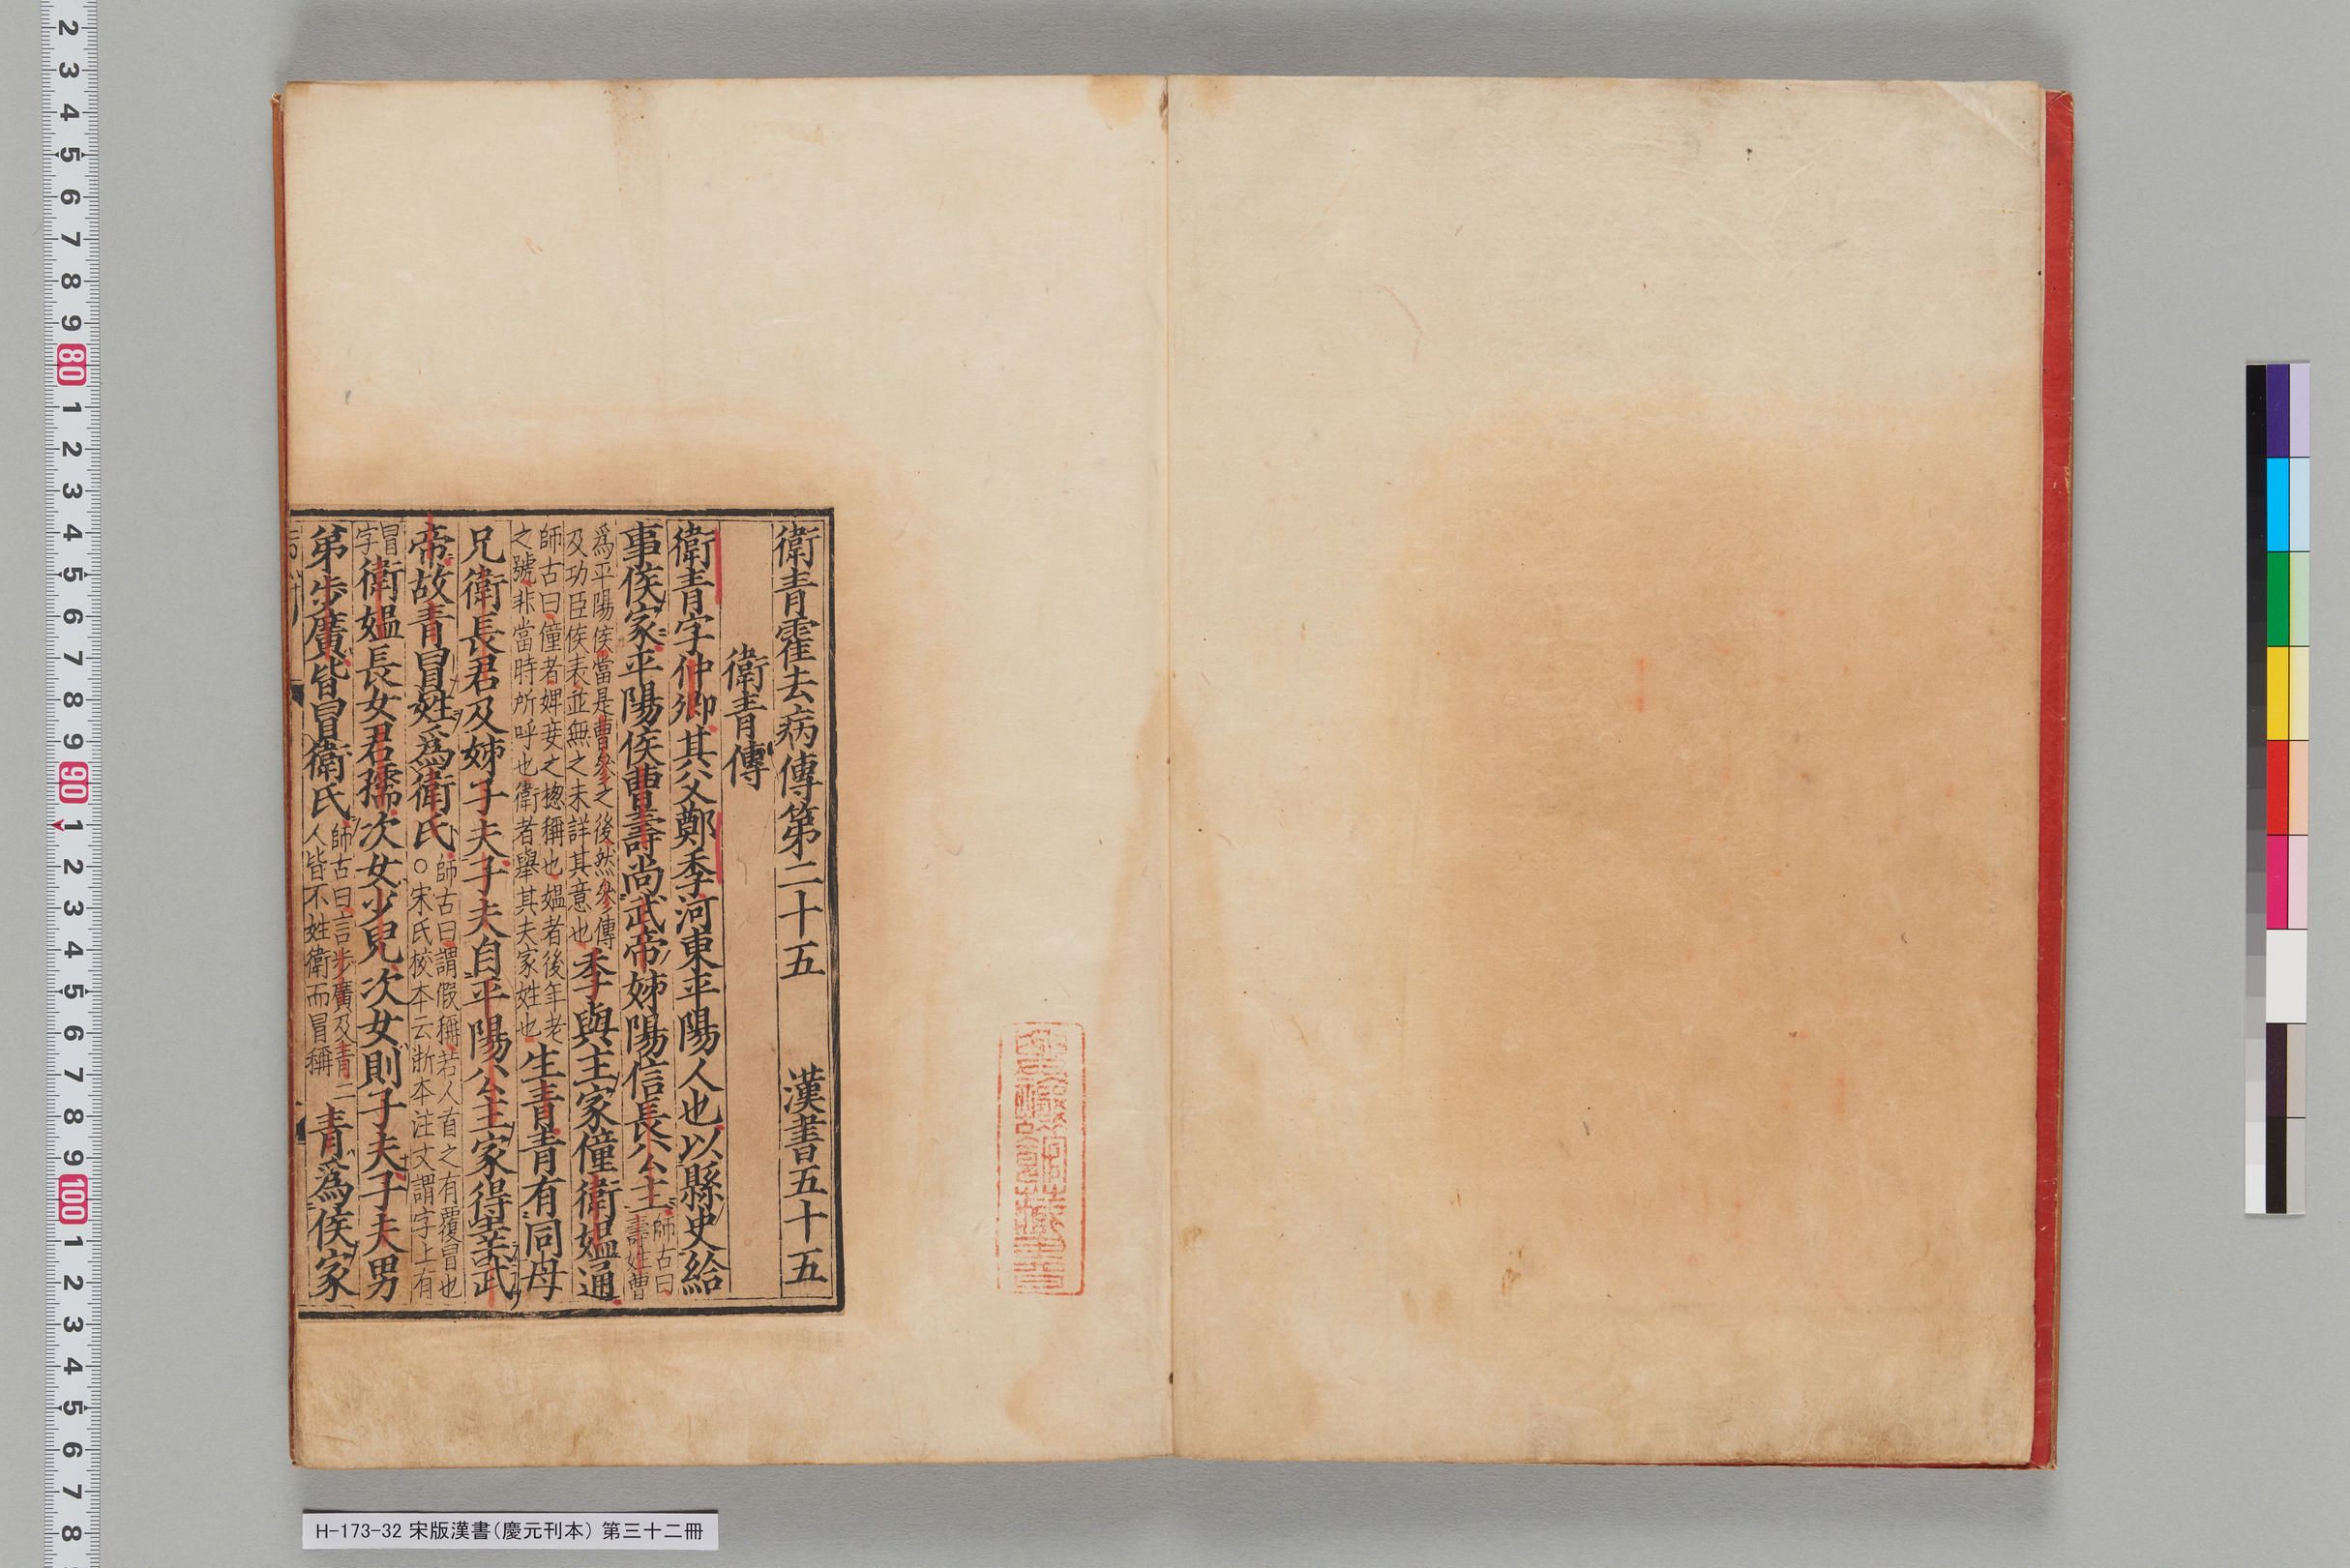 衛青霍去病傳第二十五　漢書五十五
衛青傳
衛青字仲卿其父鄭季河東平陽人也以縣史給
事侯家平陽侯曹壽尚武帝姊陽信長公主師古曰壽姓曹
爲平陽侯當是曹參之後然參傳及功臣侯表並無之未詳其意也季與主家僮衛媼通
師古曰僮者婢妾之揔稱也媼者後年老之號非當時所呼也衛者舉其夫家姓也生青青有同母
兄衛長君及姊子夫子夫自平陽公主家得幸武
帝故青冒姓爲衛氏師古曰謂假稱若人首之有覆冒也○宋氏校本云浙本注文謂字上有
冒字衛媼長女君孺次女少兒次女則子夫子夫男
弟步廣皆冒衛氏師古曰言步廣及青二人皆不姓衛而冒稱青爲侯家
H-173-32 宋版漢書(慶元刊本) 第三十二冊
2
3
4
5
6
7
8
9
80
1
2
3
4
5
6
7
8
9
90
1
2
3
4
5
6
7
8
9
100
1
2
3
4
5
6
7
8